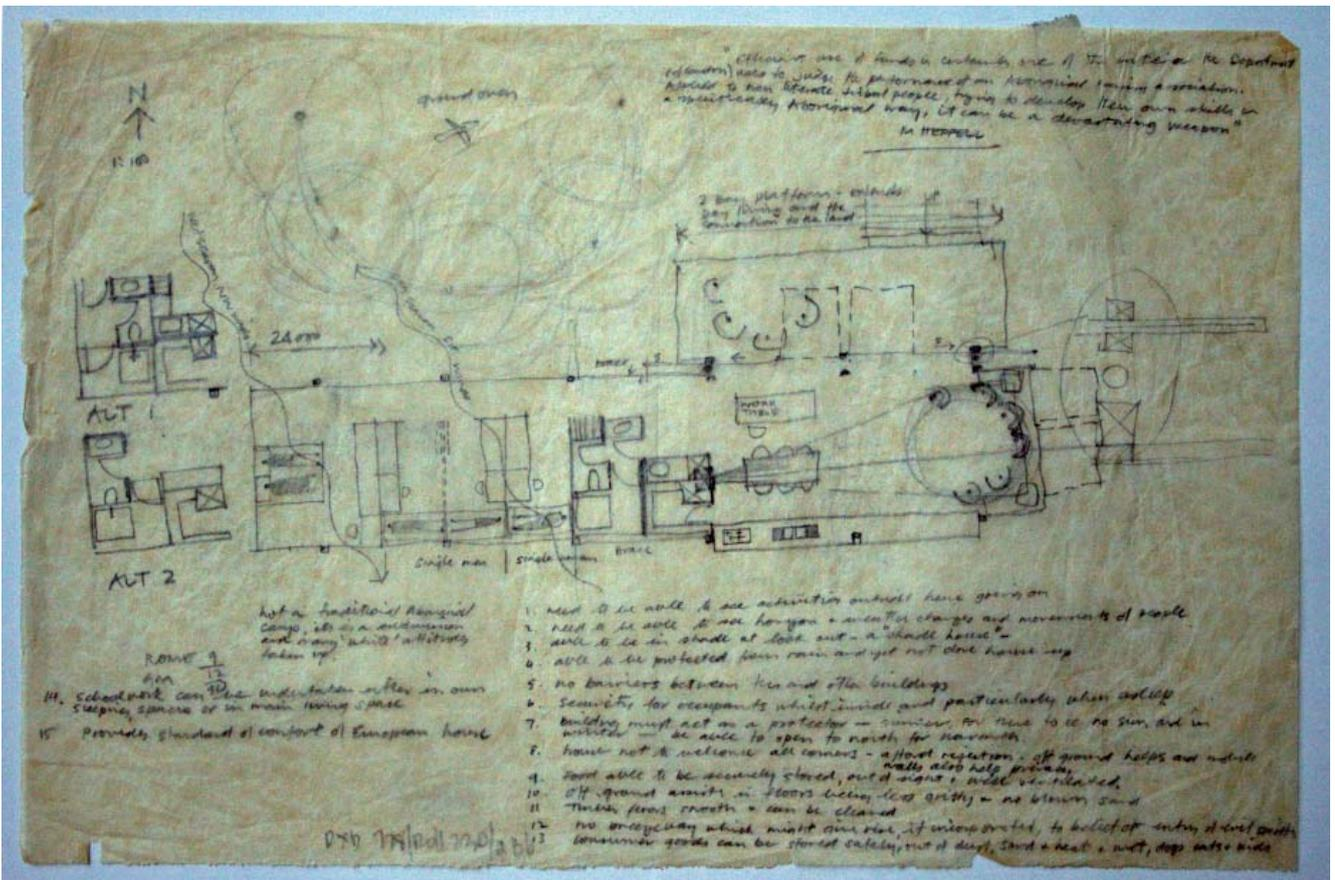 N
1:100
ground oven
" Efficient use of funds is certainly one of the criteria the Department
used to judge the performance of an Aboriginal housing association.
Applied to non literate tribal people, trying to develop their own skills in
a specifically Aboriginal way, it can be a devastating weapon"
M HEPPELL
2 bay platform - extends
day living and the
connection to the land
24000
ALT 1
ALT 2
WORK
TABLE
single men
single women
brace
not a traditional Aboriginal
camp, its a subdivision
and many 'white' attitudes
taken up.
9
12
14. Schoolwork can be undertaken either in own
sleeping spaces or in main living space
15 Provides standard of comfort of European house
1. need to be able to see activities outside
going on
2. need to be able to see horizon + weather changes and movements of people
3. able to be in shade at look out - a "shade house" -
4. able to be protected from rain and yet not close house up
5. no barriers between this and other buildings
6. security for occupants whilst inside and particularly when asleep
7. building must act as a protector - summer,
no sun, and in
winter - be able to open to north for warmth
8. house not to welcome all comers - afford rejection - off ground helps and
walls also help privacy
9. Food able to be securely stored, out of sight + well ventilated.
10. off ground assists in floors being less gritty + no blown sand
11 timber floors smooth + can be cleaned
12 no breezeway which might give rise, if incorporated, to belief of entry of evil spirits
13 consumer goods can be stored safely, out of dust, sand + heat + wet, dogs cats + kids